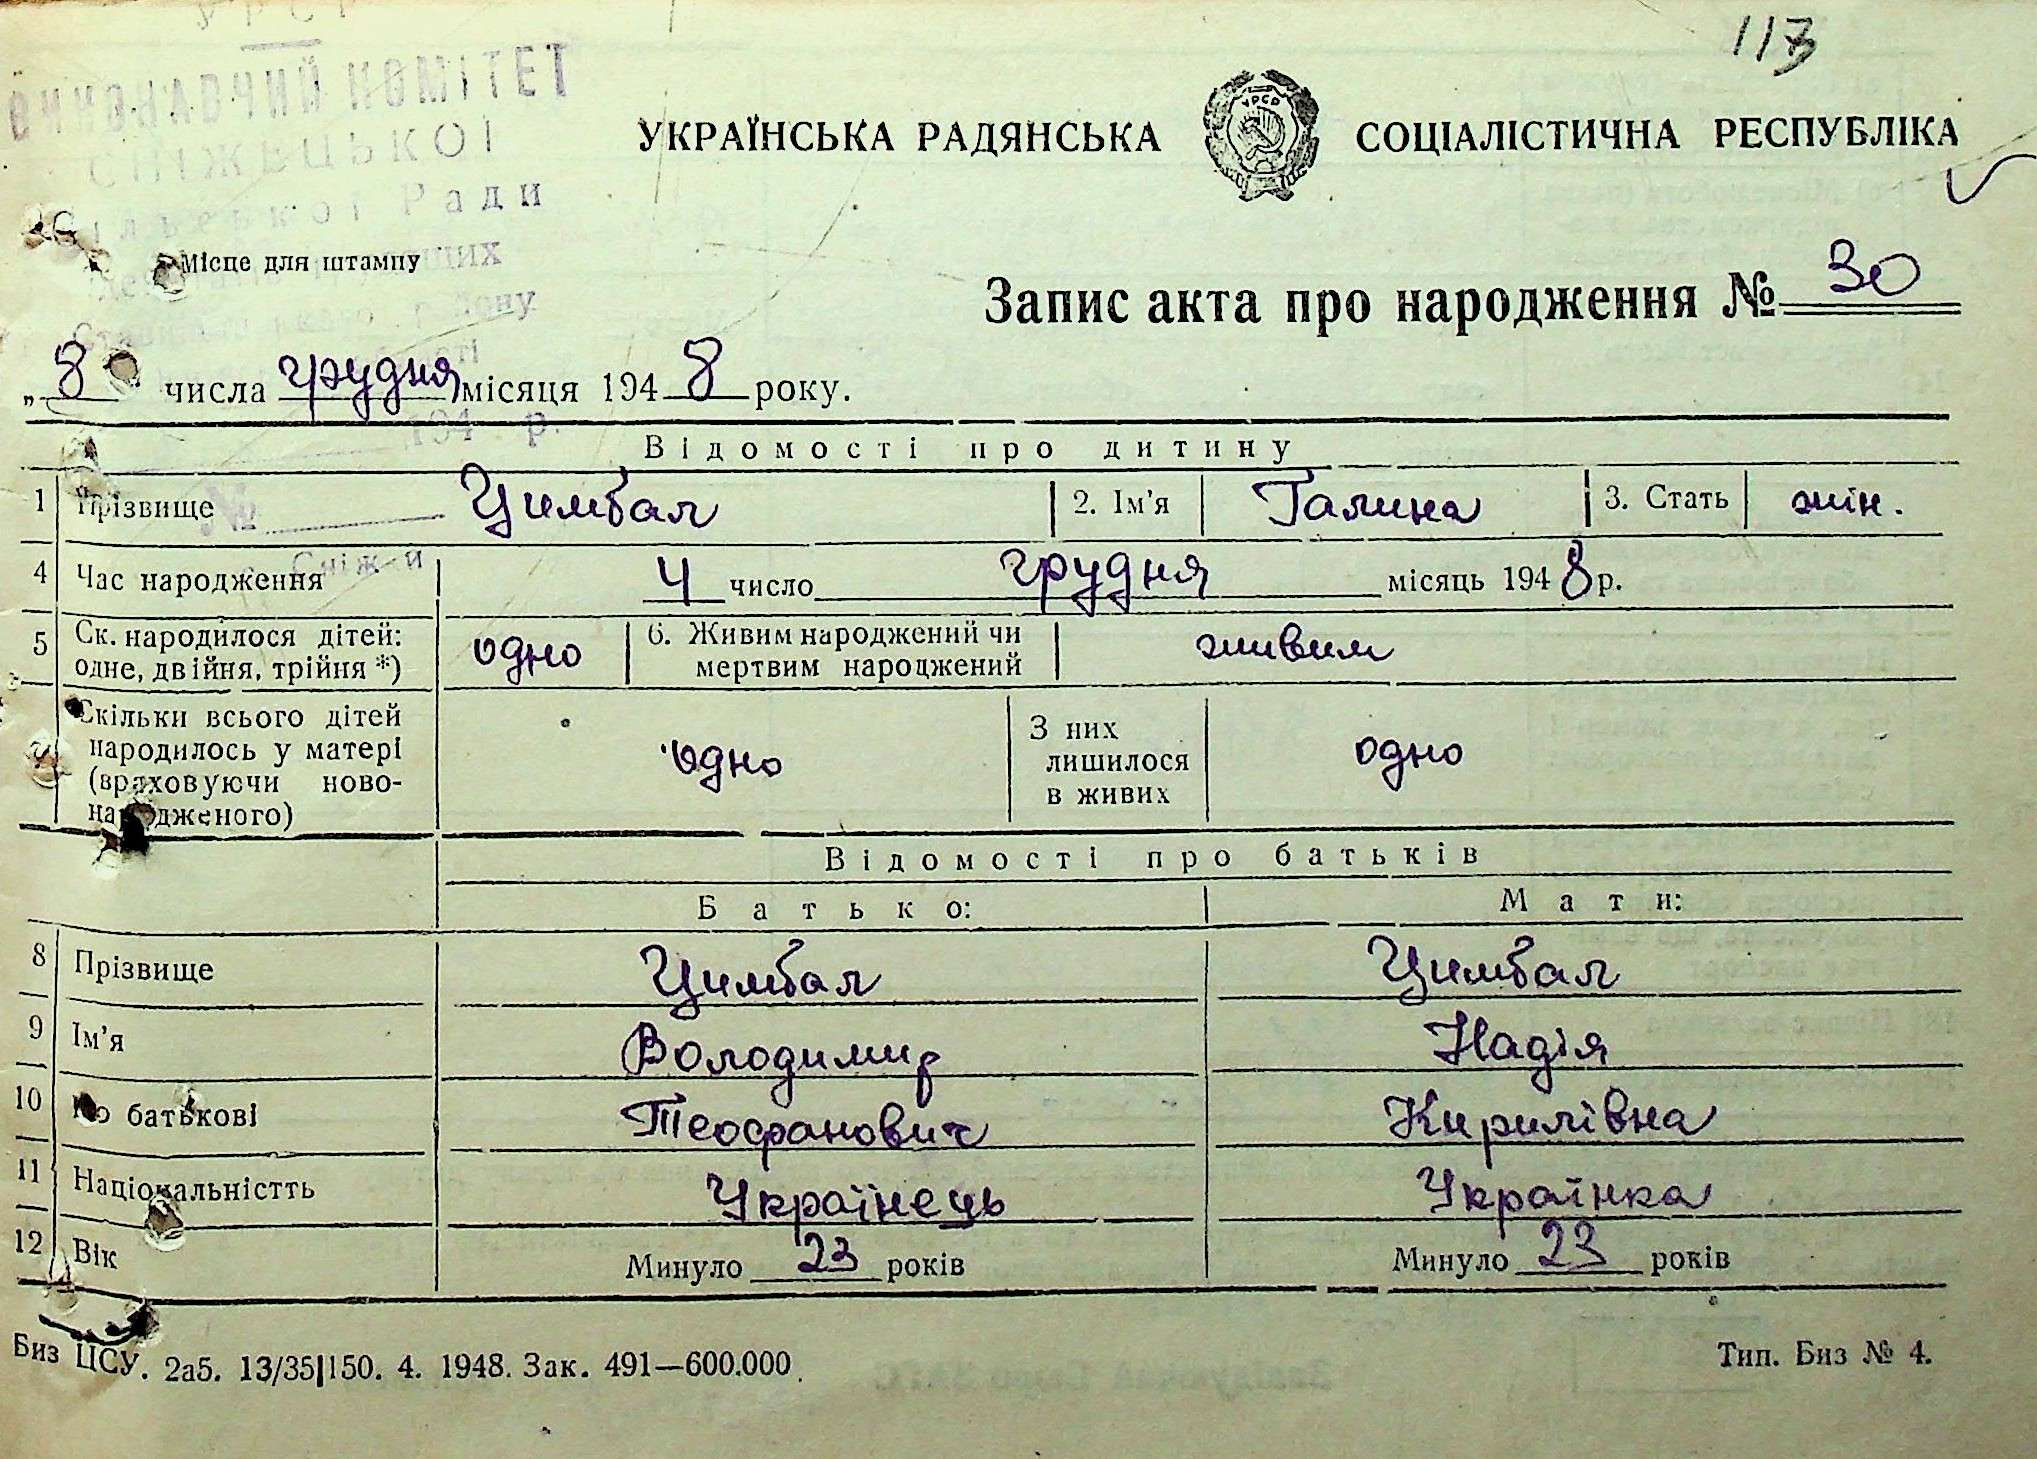 УРСР
117
ВИКОНАВЧИЙ КОМІТЕТ
УКРАЇНСЬКА РАДЯНСЬКА УРСР СОЦІАЛІСТИЧНА РЕСПУБЛІКА
Ради
Місце для штампу
Запис акта про народження № 30
„ 8 числа грудня місяця 1948 року.
194 р.
Відомості про дитину
1 Прізвище Цимбал 2. Ім'я Галина 3. Стать жін.
№
4 Час народження 4 число грудня місяць 1948 р.
5 Ск. народилося дітей: одно 6. Живим народжений чи живим
одне, двійня, трійня *) мертвим народжений
7 Скільки всього дітей З них
народилось у матері одно лишилося одно
(враховуючи ново- в живих
народженого)
Відомості про батьків
Батько: Мати:
8 Прізвище Цимбал Цимбал
9 Ім'я Володимир Надія
10 По батькові Теофанович Кирилівна
11 Національністть Українець Українка
12 Вік Минуло 23 років Минуло 23 років
Биз ЦСУ. 2а5. 13/35|150. 4. 1948. Зак. 491—600.000. Тип. Биз № 4.